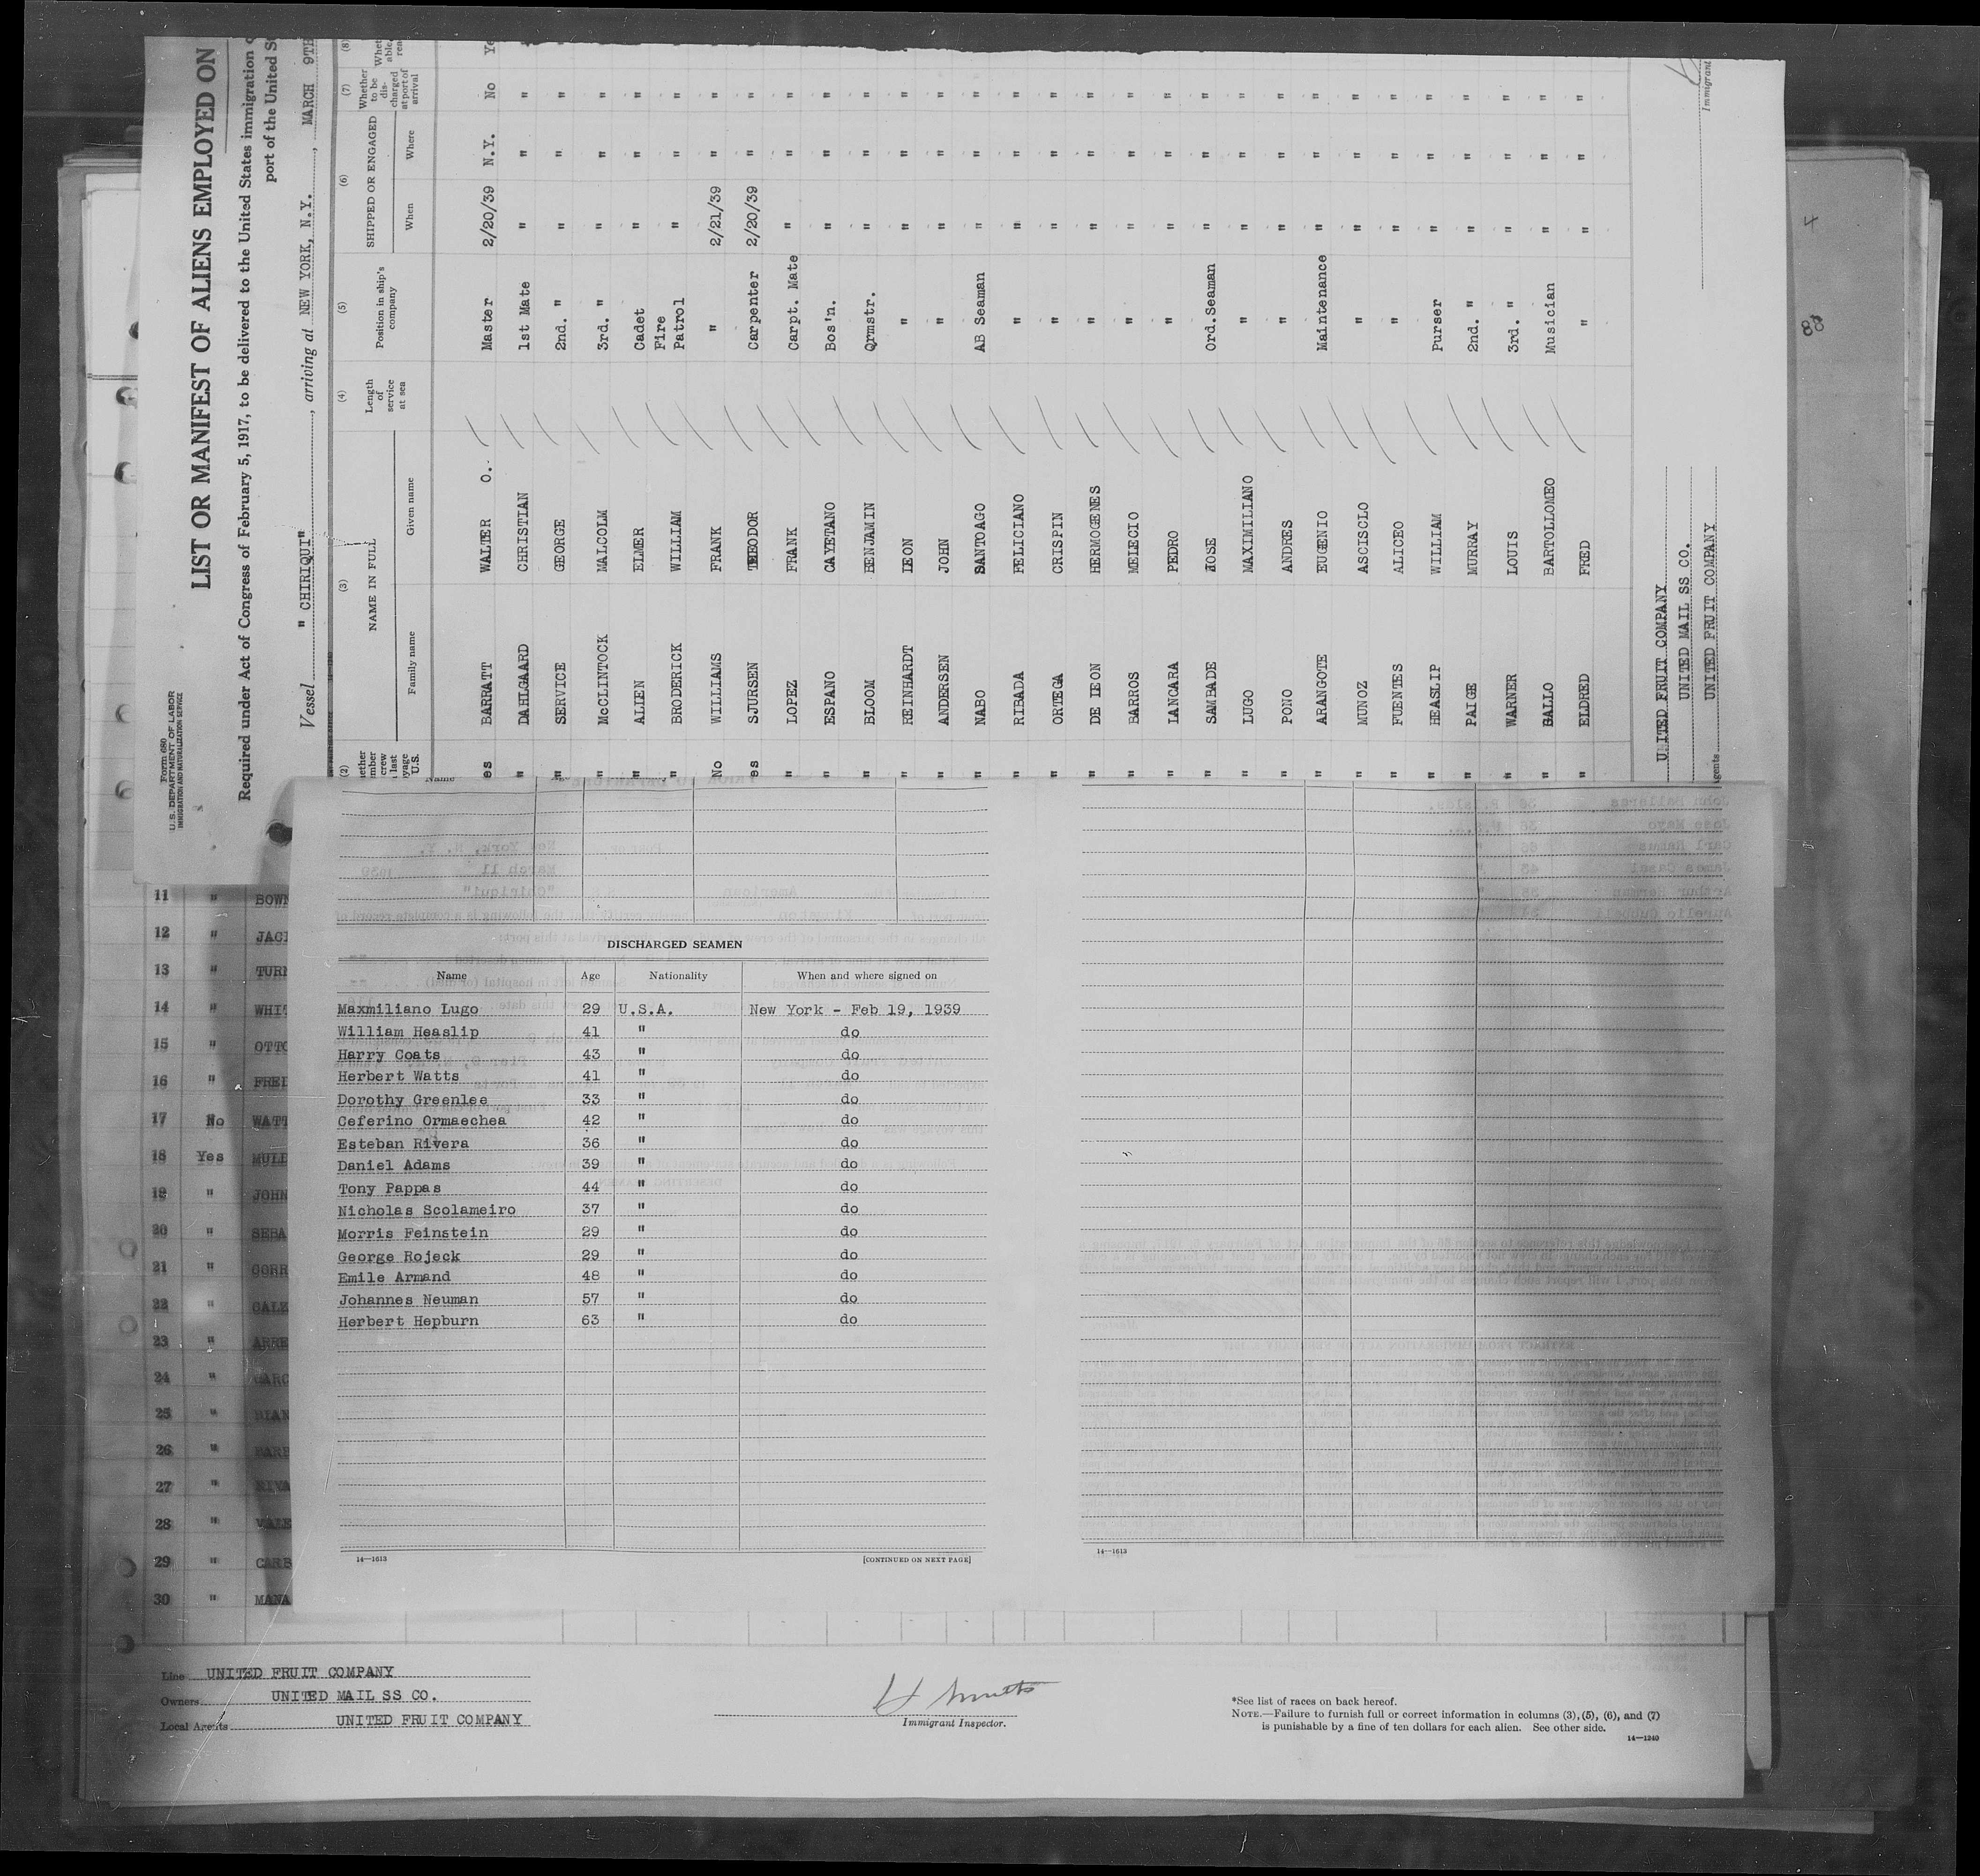 Form 680
U.S. DEPARTMENT OF LABOR
IMMIGRATION AND NATURALIZATION SERVICE
LIST OR MANIFEST OF ALIENS EMPLOYED ON
Required under Act of Congress of February 5, 1917, to be delivered to the United States immigration
port of the United
Vessel " CHIRIQUI" , arriving at NEW YORK, N.Y. , MARCH 9TH
(2) (3) (4) (5) (6) (7) (8)
NAME IN FULL Length of service at sea Position in ship's company SHIPPED OR ENGAGED Whether to be discharged at port of arrival
Family name Given name When Where
es BARRATT WALTER O. Master 2/20/39 N.Y. No Ye
" DAHLGAARD CHRISTIAN 1st Mate " " "
" SERVICE GEORGE 2nd. " " " "
" McCLINTOCK MALCOLM 3rd. " " " "
" ALLEN ELMER Cadet " " "
" BRODERICK WILLIAM Fire Patrol " " "
No WILLIAMS FRANK " 2/21/39 " "
es SJURSEN THEODOR Carpenter 2/20/39 " "
" LOPEZ FRANK Carpt. Mate " " "
" ESPANO CAYETANO Bos'n. " " "
" BLOOM BENJAMIN Qrmstr. " " "
" REINHARDT LEON " " " "
" ANDERSEN JOHN " " " "
" NABO SANTOAGO AB Seaman " " "
" RIBADA FELICIANO " " " "
" ORTEGA CRISPIN " " " "
" DE LEON HERMOGENES " " " "
" BARROS MELECIO " " " "
" LANCARA PEDRO " " " "
" SAMBADE JOSE Ord.Seaman " " "
" LUGO MAXIMILIANO " " " "
" PONO ANDRES " " " "
" ARANGOTE EUGENIO Maintenance " " "
" MUNOZ ASCISCLO " " " "
" FUENTES ALICEO " " " "
" HEASLIP WILLIAM Purser " " "
" PAIGE MURRAY 2nd. " " " "
" WARNER LOUIS 3rd. " " " "
" BALLO BARTOLLOMEO Musician " " "
" ELDRED FRED " " " "
UNITED FRUIT COMPANY
UNITED MAIL SS CO.
gents UNITED FRUIT COMPANY
Immigrant
4
11 " BOWN
12 " JAC
13 " TURN
14 " WHIT
15 " OTTO
16 " FRED
17 No WATT
18 Yes MULL
19 " JOHN
20 " SEBA
21 " CORR
22 " CALE
23 " ARRE
24 " GARC
25 "
26 " BARB
27 "
28 " VALE
29 " CARB
30 " MANA
DISCHARGED SEAMEN
Name Age Nationality When and where signed on
Maxmiliano Lugo 29 U.S.A. New York - Feb 19, 1939
William Heaslip 41 " do
Harry Coats 43 " do
Herbert Watts 41 " do
Dorothy Greenlee 33 " do
Ceferino Ormaechea 42 " do
Esteban Rivera 36 " do
Daniel Adams 39 " do
Tony Pappas 44 " do
Nicholas Scolameiro 37 " do
Morris Feinstein 29 " do
George Rojeck 29 " do
Emile Armand 48 " do
Johannes Neuman 57 " do
Herbert Hepburn 63 " do
14—1613 [CONTINUED ON NEXT PAGE]
14—1613
Line UNITED FRUIT COMPANY
Owners UNITED MAIL SS CO.
Local Agents UNITED FRUIT COMPANY
Immigrant Inspector.
*See list of races on back hereof.
NOTE.—Failure to furnish full or correct information in columns (3), (5), (6), and (7)
is punishable by a fine of ten dollars for each alien. See other side.
14—1240